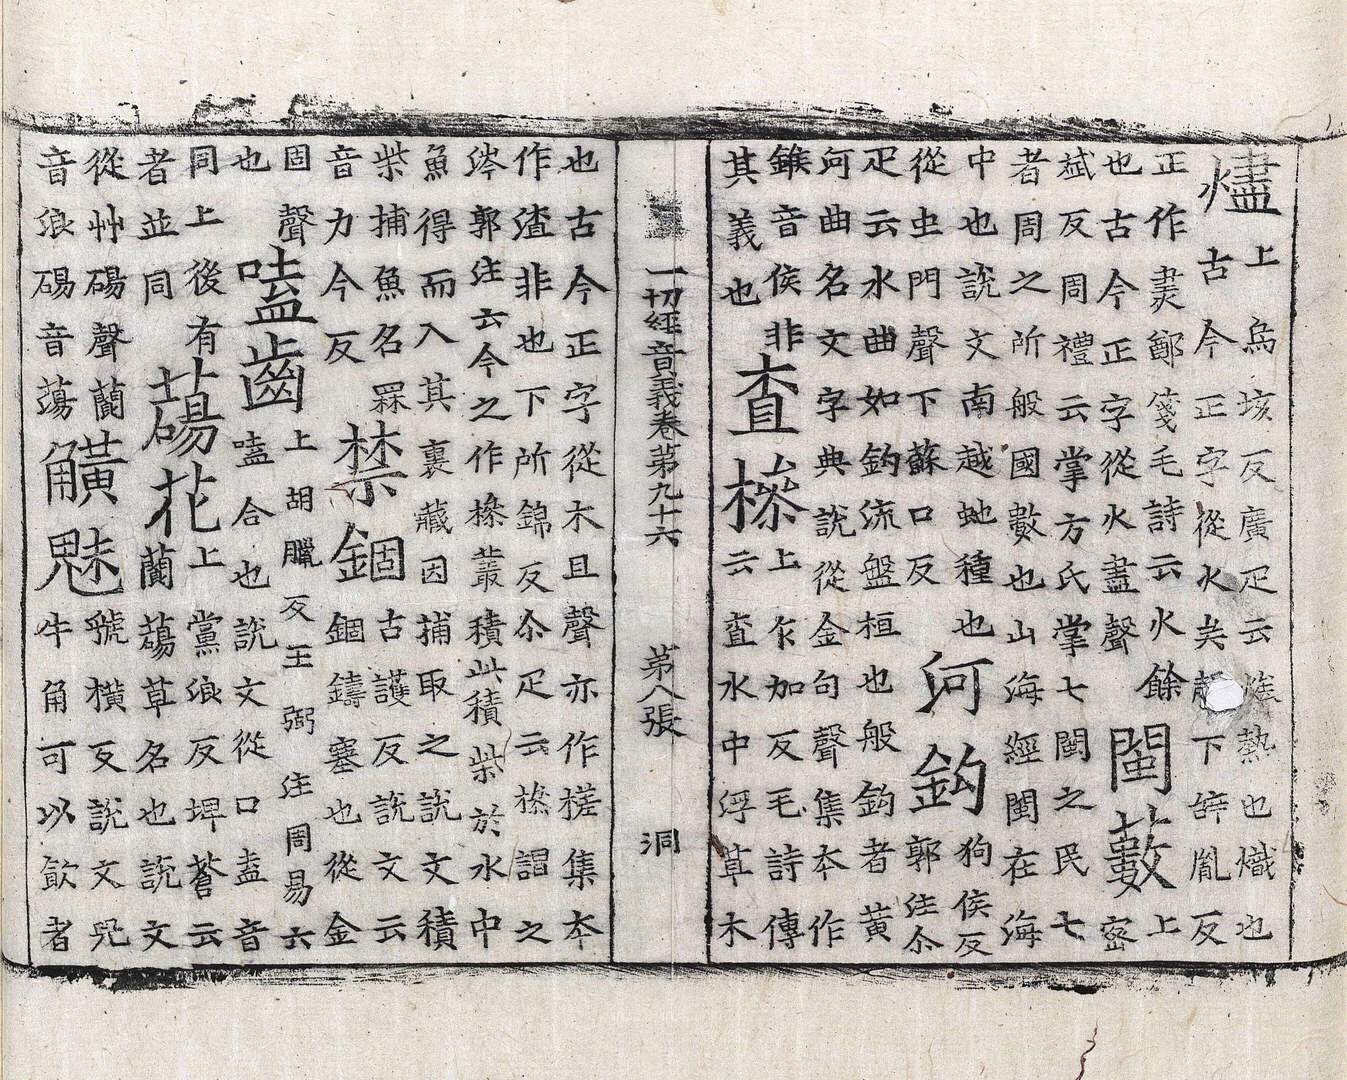 燼上烏垓反廣疋云熱也熾也
古今正字從火矣聲下辝胤反
正作㶳鄭箋毛詩云火餘
也古今正字從火盡聲
閩藪上
密
斌反周禮云掌方氏掌七閩之民七
者周之所般國數也山海經閩在海
中也說文南越虵種也
從虫門聲下蘇口反
河鈎狗侯反
郭注尒
疋云水曲如鈎流盤桓也般鈎者黃
河曲名文字典說從金句聲集本作
鍭音侯非
其義也
查槮上乍加反毛詩傳
云查水中浮草木
一切經音義卷第九十六 第八張 洞
也古今正字從木且聲亦作槎集本
作渣非也下所錦反尒疋云槮謂之
涔郭注云今之作槮叢積此積柴於水中
魚得而入其裏藏因捕取之說文積
柴捕魚名罧
音力今反
禁錮古護反說文云
錮鑄塞也從金
固聲
也
嗑齒上胡臘反王弼注周易六
嗑合也說文從口盍音
同上後有
者並同
䕞花上黨浪反埤蒼云
蘭䕞草名也說文
從艸碭聲蘭
音浪碭音蕩
觵魅虢橫反說文兕
牛角可以飲者